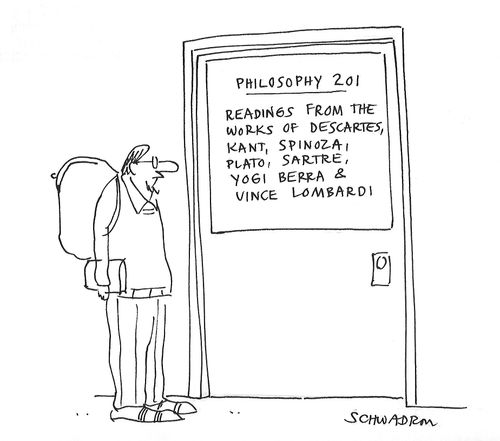 PHILOSOPHY 201
READINGS FROM THE
WORKS OF DESCARTES,
KANT, SPINOZA,
PLATO, SARTRE,
YOGI BERRA &
VINCE LOMBARDI
SCHWADRON